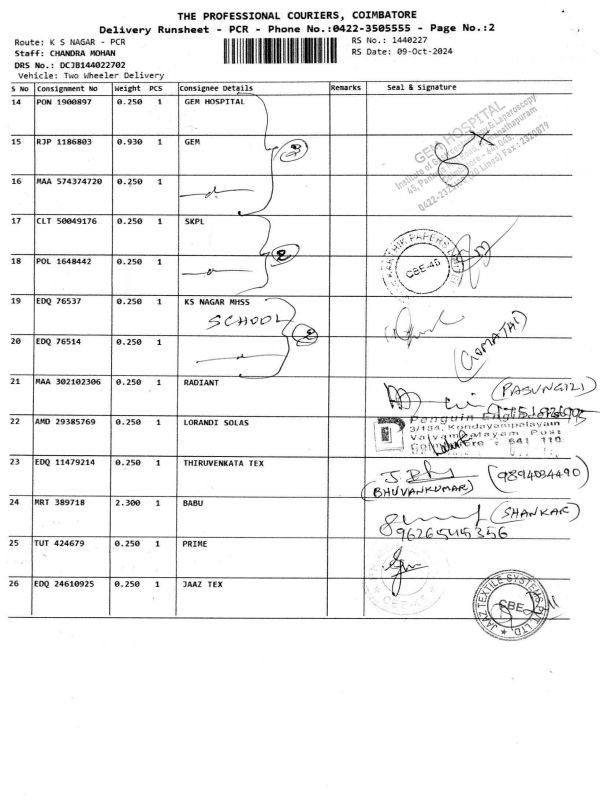 THE PROFESSIONAL COURIERS, COIMBATORE
Delivery Runsheet - PCR - Phone No.:0422-3505555 - Page No.:2
Route: K S NAGAR - PCR
RS No.: 1440227
Staff: CHANDRA MOHAN
RS Date: 09-Oct-2024
DRS No.: DCJB144022702
Vehicle: Two Wheeler Delivery
S No Consignment No Weight PCS Consignee Details Remarks Seal & Signature
14 PON 1900897 0.250 1 GEM HOSPITAL
GEM HOSPITAL
15 RJP 1186803 0.930 1 GEM
2
16 MAA 574374720 0.250 1
17 CLT 50049176 0.250 1 SKPL
2
CBE-45
18 POL 1648442 0.250 1
19 EDQ 76537 0.250 1 KS NAGAR MHSS
SCHOOL
(GOMATHI)
20 EDQ 76514 0.250 1
21 MAA 302102306 0.250 1 RADIANT
22 AMD 29385769 0.250 1 LORANDI SOLAS
Penguin
3/134, Kondayampalayam
Post
641 110
23 EDQ 11479214 0.250 1 THIRUVENKATA TEX
(BHUVANKUMAR)
(9894034490)
24 MRT 389718 2.300 1 BABU
(SHANKAR)
9626545356
25 TUT 424679 0.250 1 PRIME
26 EDQ 24610925 0.250 1 JAAZ TEX
JAAZ TEXTILE SYSTEMS PVT. LTD.
CBE